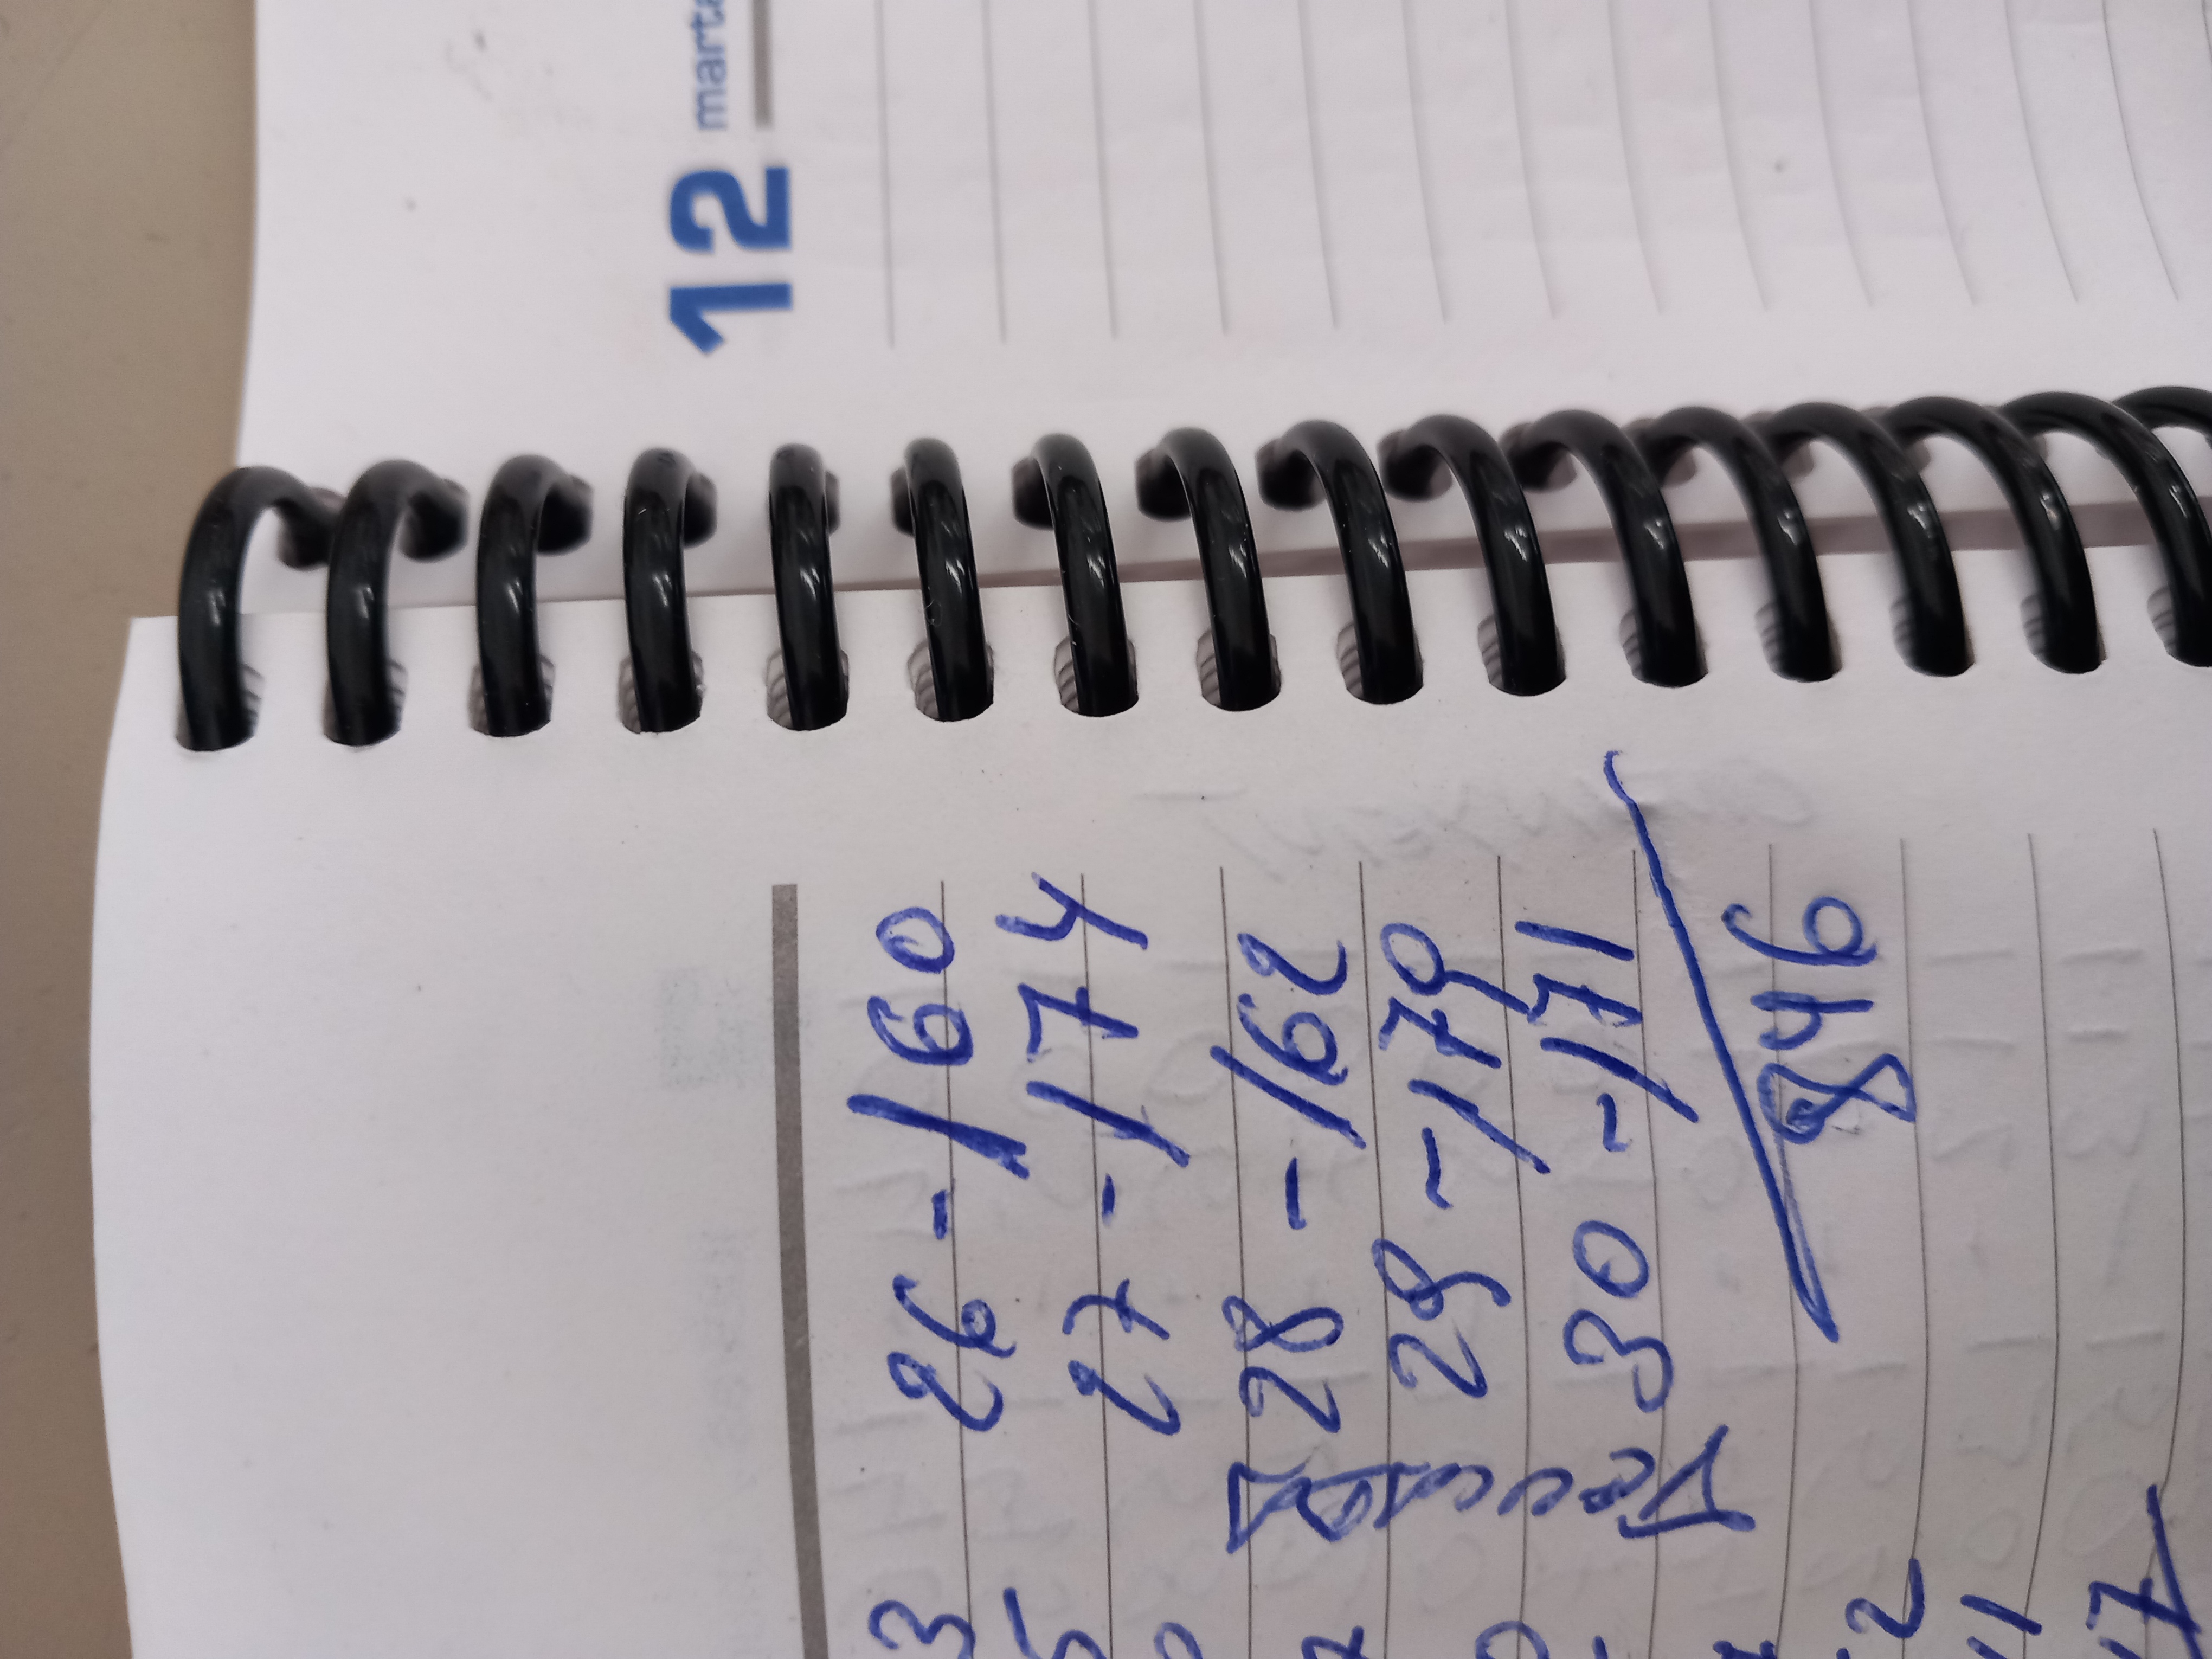 26 - 160
27 - 174
28 - 162
29 - 179
30 - 171
846
12 marta